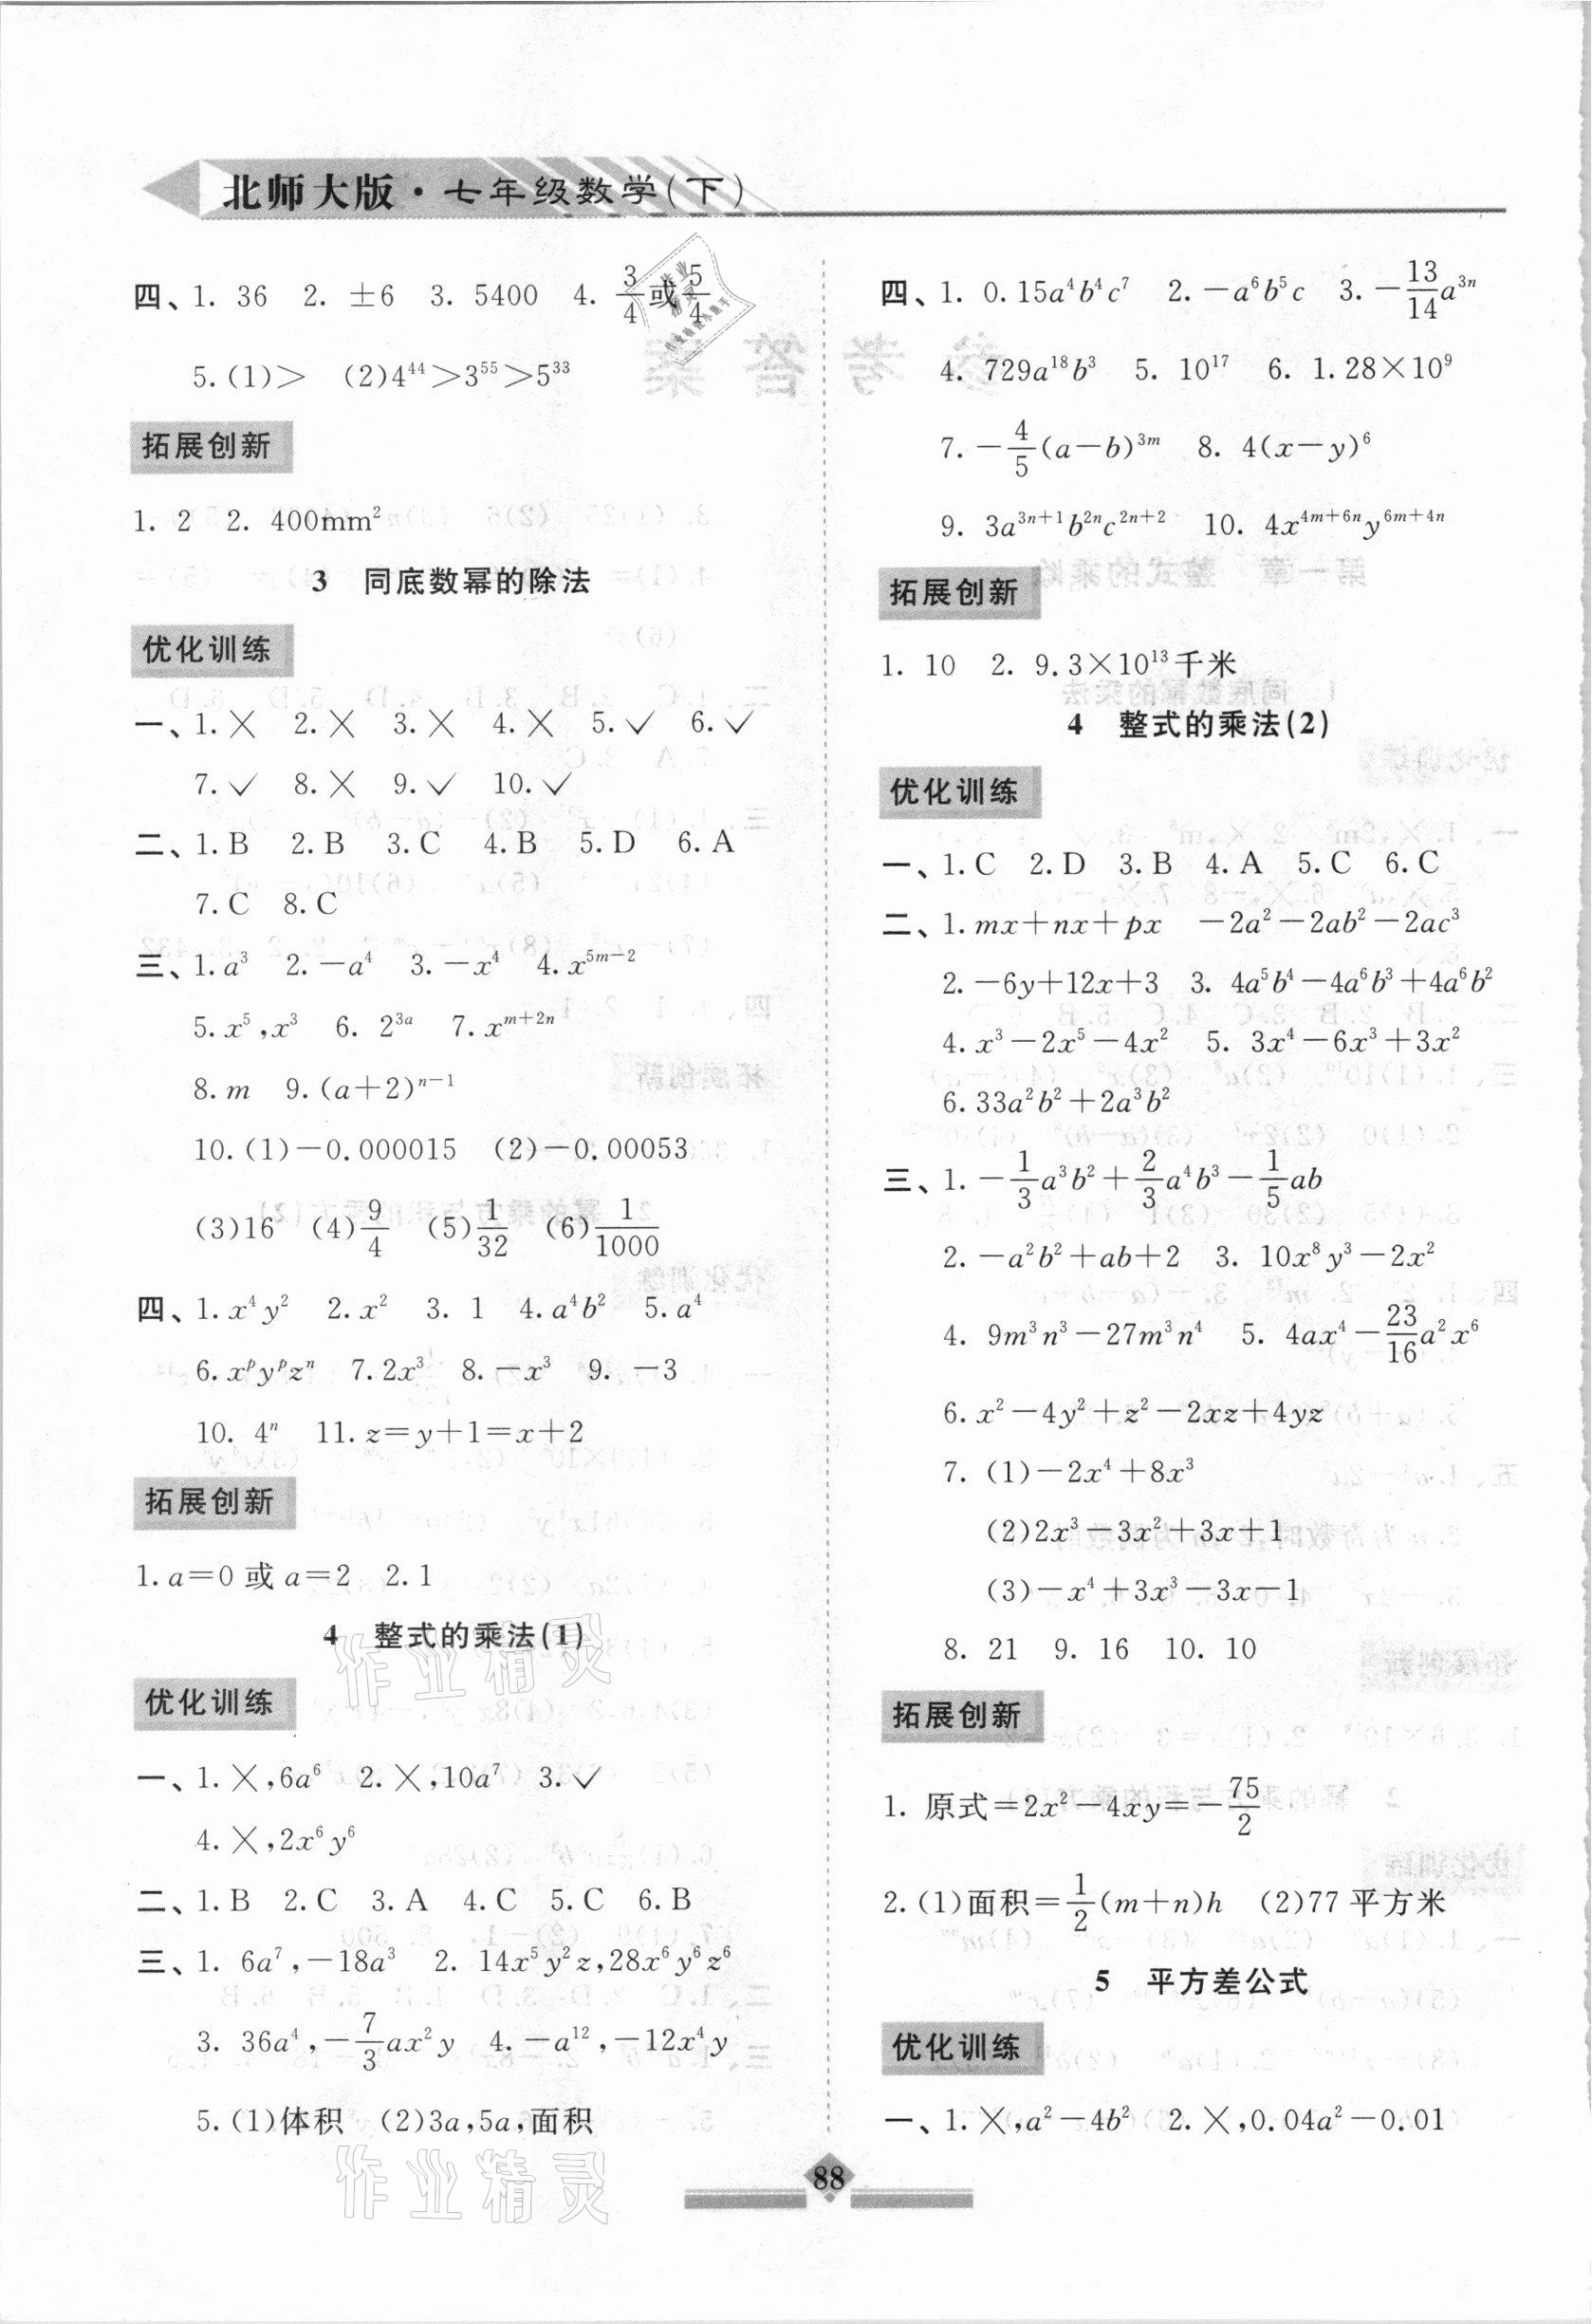 北师大版·七年级数学(下)
四、1. 36 2. ±6 3. 5400 4. 3/4或5/4
5.(1)> (2)4⁴⁴>3⁵⁵>5³³
拓展创新
1. 2 2. 400mm²
3 同底数幂的除法
优化训练
一、1.╳ 2.╳ 3.╳ 4.╳ 5.✓ 6.✓
7.✓ 8.╳ 9.✓ 10.✓
二、1.B 2.B 3.C 4.B 5.D 6.A
7.C 8.C
三、1.a³ 2.-a⁴ 3.-x⁴ 4.x⁵ᵐ⁻²
5.x⁵,x³ 6. 2³ᵃ 7.xᵐ⁺²ⁿ
8.m 9.(a+2)ⁿ⁻¹
10.(1)-0.000015 (2)-0.00053
(3)16 (4)9/4 (5)1/32 (6)1/1000
四、1.x⁴y² 2.x² 3. 1 4.a⁴b² 5.a⁴
6.xᵖyᵖzⁿ 7.2x³ 8.-x³ 9.-3
10. 4ⁿ 11.z=y+1=x+2
拓展创新
1.a=0 或 a=2 2.1
4 整式的乘法(1)
优化训练
一、1.╳,6a⁶ 2.╳,10a⁷ 3.✓
4.╳,2x⁶y⁶
二、1.B 2.C 3.A 4.C 5.C 6.B
三、1. 6a⁷,-18a³ 2. 14x⁵y²z,28x⁶y⁶z⁶
3. 36a⁴,-7/3ax²y 4.-a¹²,-12x⁴y
5.(1)体积 (2)3a,5a,面积
四、1. 0.15a⁴b⁴c⁷ 2.-a⁶b⁵c 3.-13/14a³ⁿ
4. 729a¹⁸b³ 5. 10¹⁷ 6. 1.28×10⁹
7.-4/5(a-b)³ᵐ 8. 4(x-y)⁶
9. 3a³ⁿ⁺¹b²ⁿc²ⁿ⁺² 10. 4x⁴ᵐ⁺⁶ⁿy⁶ᵐ⁺⁴ⁿ
拓展创新
1. 10 2. 9.3×10¹³千米
4 整式的乘法(2)
优化训练
一、1.C 2.D 3.B 4.A 5.C 6.C
二、1.mx+nx+px -2a²-2ab²-2ac³
2.-6y+12x+3 3. 4a⁵b⁴-4a⁶b³+4a⁶b²
4.x³-2x⁵-4x² 5. 3x⁴-6x³+3x²
6.33a²b²+2a³b²
三、1.-1/3a³b²+2/3a⁴b³-1/5ab
2.-a²b²+ab+2 3. 10x⁸y³-2x²
4. 9m³n³-27m³n⁴ 5. 4ax⁴-23/16a²x⁶
6.x²-4y²+z²-2xz+4yz
7.(1)-2x⁴+8x³
(2)2x³-3x²+3x+1
(3)-x⁴+3x³-3x-1
8. 21 9. 16 10. 10
拓展创新
1. 原式=2x²-4xy=-75/2
2.(1)面积=1/2(m+n)h (2)77 平方米
5 平方差公式
优化训练
一、1.╳,a²-4b² 2.╳,0.04a²-0.01
88
作业精灵
作业精灵